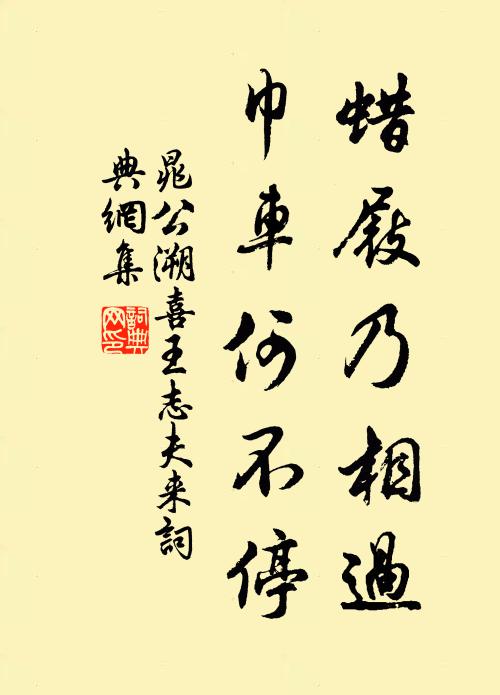 蜡屐乃相過
巾車何不停
晁公溯喜王志夫来詞
典網集
詞典
网印